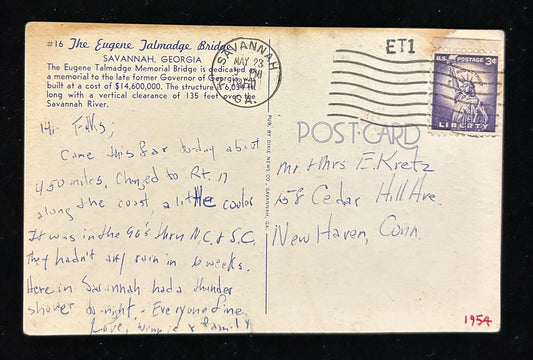 #16 The Eugene Talmadge Bridge
SAVANNAH, GEORGIA
The Eugene Talmadge Memorial Bridge is dedicated as
a memorial to the late former Governor of Georgia,
built at a cost of $14,600,000. The structure is 6,034
long with a vertical clearance of 135 feet over the
Savannah River.
SAVANNAH
MAY 23
PM
GA.
ET1
U.S. POSTAGE 3¢
LIBERTY
PUB. BY DIXIE NEWS CO., SAVANNAH, GA.
POST CARD
Hi - Folks;
Came this far to-day about
450 miles. Changed to Rt. 17
along the coast a little cooler
It was in the 90's thru N.C. & S.C.
They hadn't any rain in 6 weeks.
Here in Savannah had a thunder
shower to-night. - Everyone fine.
Love, Winnie & family
Mr & Mrs E. Kretz
658 Cedar Hill Ave.
New Haven, Conn.
1954